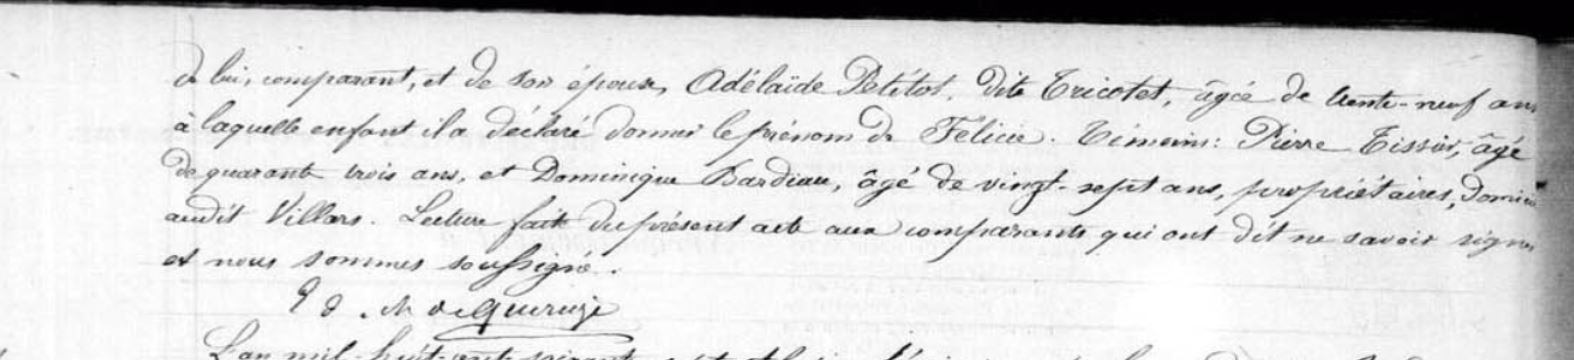 de lui, comparant, et de son épouse, Adélaïde Petitot, dite Tricotet, âgée de trente-neuf ans
à laquelle enfant il a déclaré donner le prénom de Félicie. Témoins: Pierre Tissier, âgé
de quarante trois ans, et Dominique Bardiau, âgé de vingt-sept ans, propriétaires, domici
audit Villars. Lecture faite du présent acte aux comparants qui ont dit ne savoir signer
et nous sommes soussigné.
L'an mil-huit-cent-soixante